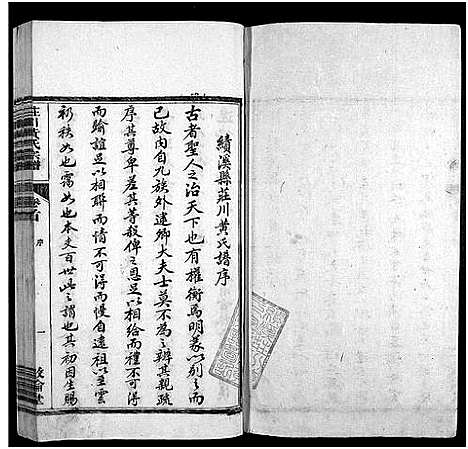 績溪縣莊川黃氏譜序
古者聖人之治天下也有權衡焉明義以別之而
已故內自九族外達卿大夫士莫不為之辨其親疏
序其尊卑差其等殺俾之恩足以相給而禮不可得
而踰誼足以相聯而情不可得而慢自遠祖以至雲
礽秩如也靄如也本支百世此之謂也其初因生賜
莊川黃氏宗譜
卷首
序
一
敦倫堂